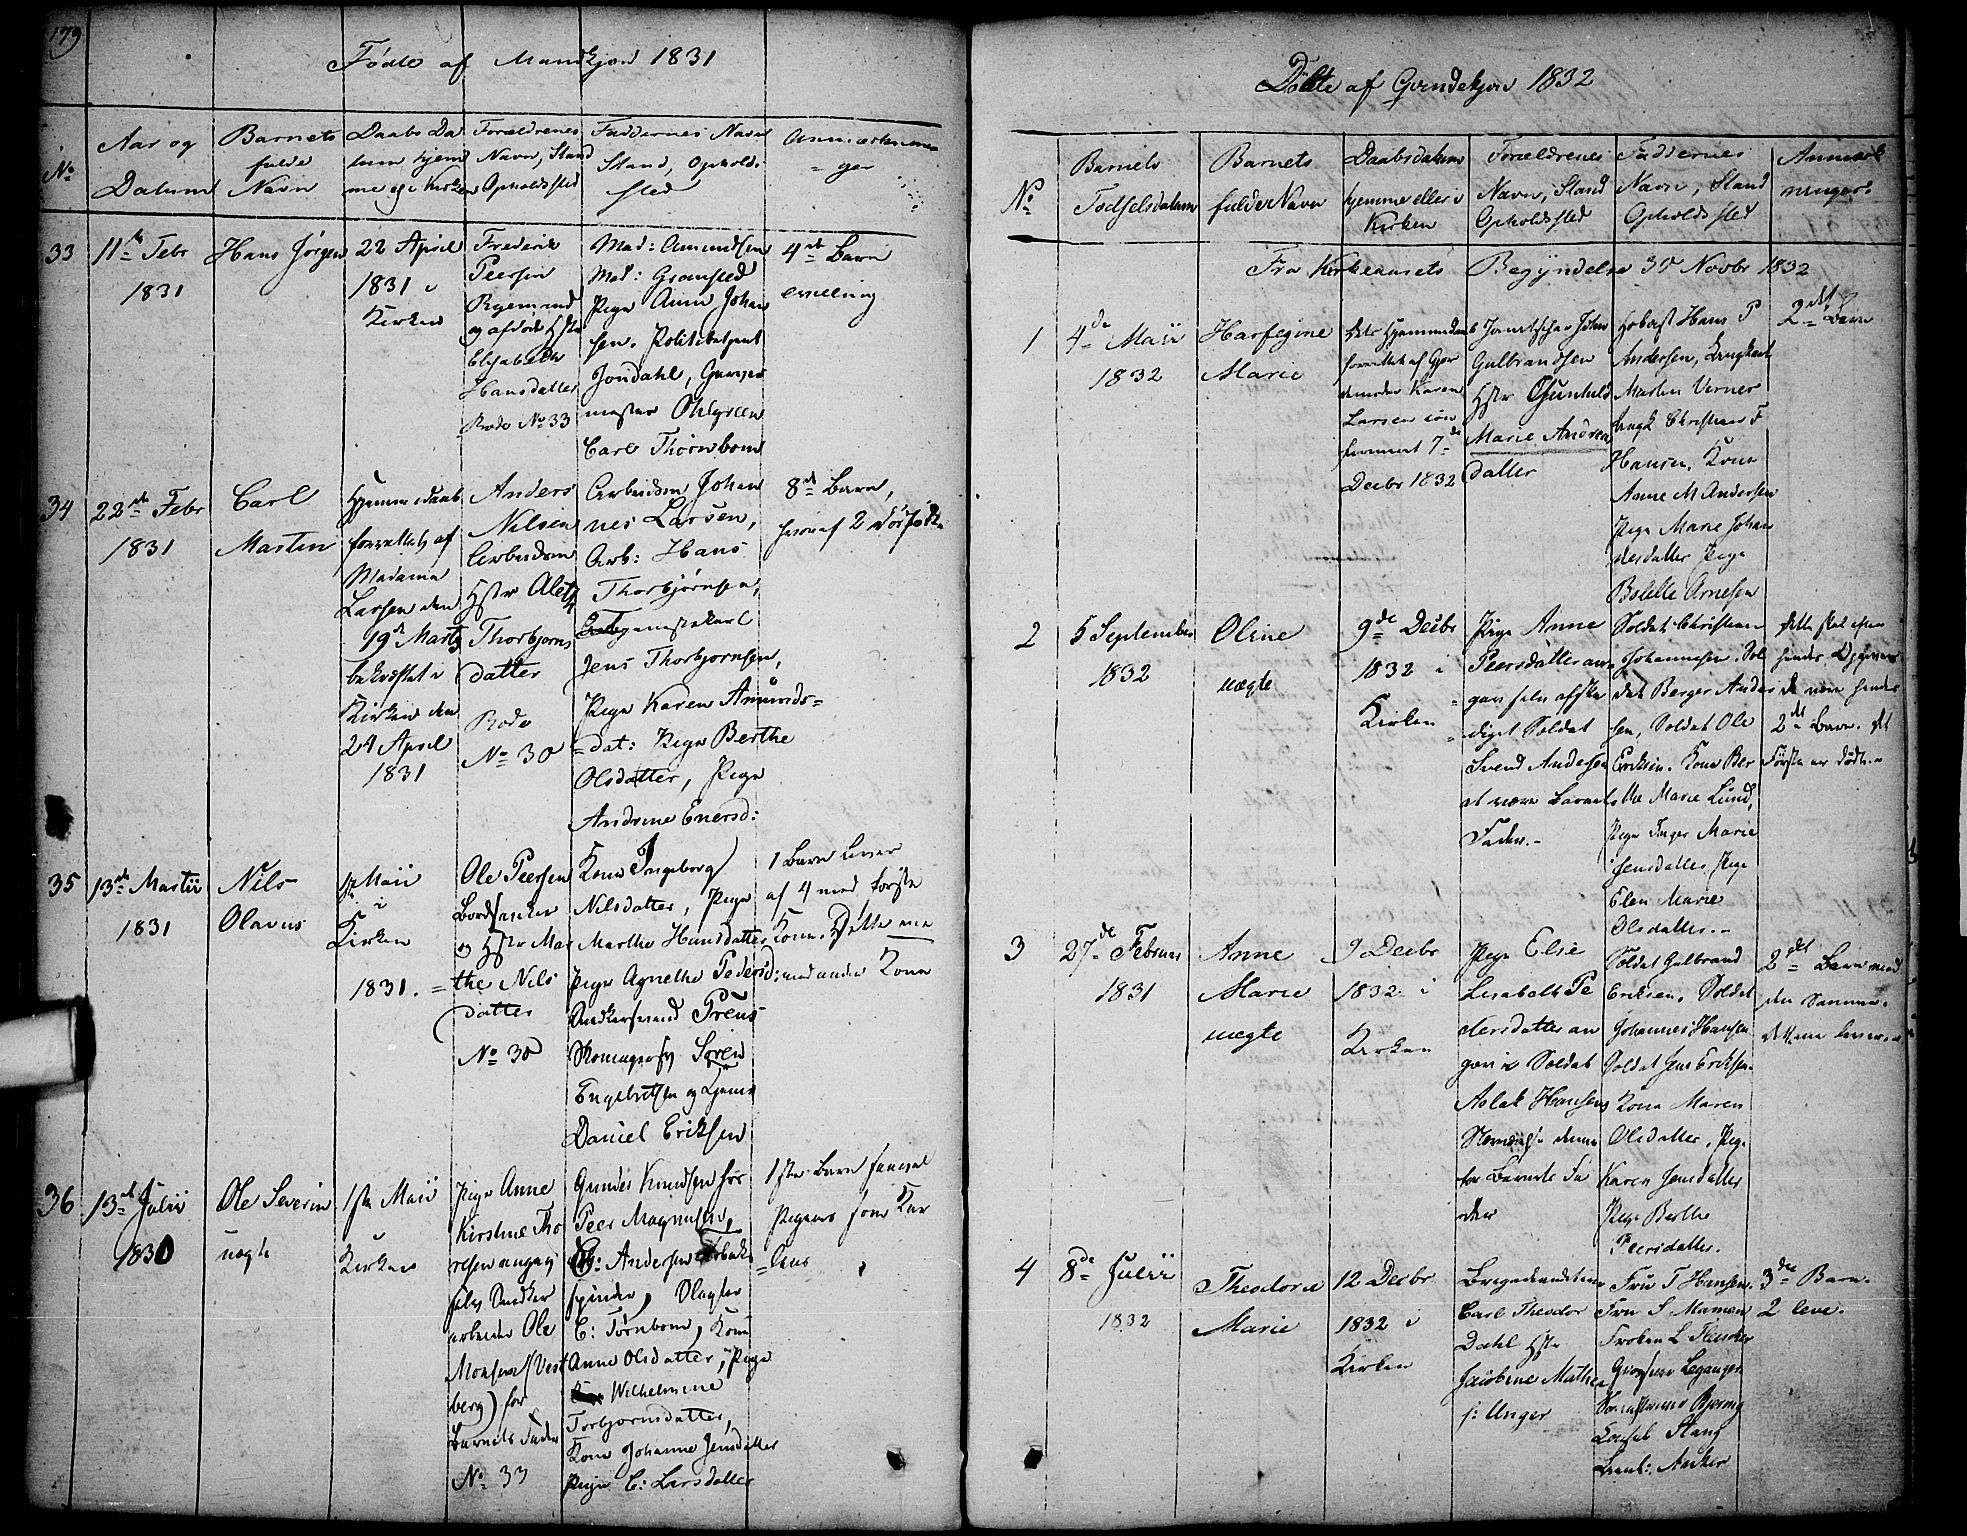 179
Fødte af Mandkjøn 1831
No
Aar og
Datum
Barnets
fulde
Navn
Daabs Da
tum hjem
me og i Kirken
Forældrenes
Navn, Stand
Opholdssted
Faddernes Navn
Stand, Ophold-
sted
Anmærknin=
=ger
33
11te Febr
1831
Hans Jørgen
22 April
1831 i
Kirken
Frederik
Peersen
og afdøde Hstr
Elisabeth
Hansdatter
Rode No 33
Mad: Amundsen
Mad: Gramsted
Pige Anne Johan
sen. Politibetjent
Jondahl,
mester
Carl Thørnbom
4de Barn
34
22de Febr
1831
Carl
Martin
Hjemmedaab
forrettet af
Madame
Larsen den
19de Marty
bekræftet i
Kirken den
24 April
1831
Anders
Nilsen
Arbeidsm
Hstr Aleth
Thorbjørns
datter
Rode
No 30
Arbeidsm Johan
nes Larsen,
Arb: Hans
Thorbjørnsen,
Jens Thorbjørnsen,
Pige Karen Amunds=
=dat: Pige Berthe
Olsdatter, Pige
Andrine Enersd:
8de Barn,
hvoraf 2 dødfødte
35
13de Martii
1831
Nils
Olavus
1ste Maii
i
Kirken
1831.
Ole Peersen
og Hstr Mar
=the Nils
datter
No 30
Kone Ingeborg
Nilsdatter, Pige
Marthe Hansdatter
Pige Agnethe Pedersd:
Snedkersvend Preus
Skomagersv Søren
Engebretsen og
Daniel Eriksen
1 Barn lever
af 4 med første
Kone. Dette ene
med anden Kone
36
13de Julii
1830
Ole Severin
uægte
1ste Maii
i
Kirken
Pige Anne
Kirstine Tho
resen angav
selv Snedker
arbeider Ole
Monsen (Vest
berg) for
Barnets Fader
No 33
Gunder Knudsen hos
Peer Magnusen,
Andersen Tobak
spinder, Slagter
C: Tørnbom, Kone
Anne Olsdatter, Pige
Wilhelmine
Torbjørnsdatter,
Kone Johanne Jensdatter
Pige C: Larsdatter
1ste Barn saavel
Pigens som Kar
=lens
Døbte af Qvindekjøn 1832
No
Barnets
Fødselsdatum
Barnets
fulde Navn
Daabsdatum
hjemme eller i
Kirken
Forældrenes
Navn, Stand
Opholdsted
Faddernes
Navn, Stand
Opholdsted
Anmærk
ninger.
Fra Kirkeaarets Begyndelse 30 Novbr 1832
1
4de Maii
1832
Harfegine
Marie
Dets Hjemmedaab
forrettet af Gjor
demoder Karen
Larsen con
firmeret 7de
Decbr 1832
Janitschar John
Gulbrandsen
Hstr Gunhild
Marie Andrea
datter
Hoboist Hans P
Andersen,
Martin Verner
Christian F
Hansen, Kone
Anne M Andersen
Pige Marie Johan
nesdatter Pige
Bolette Arnesen
2det Barn
2
5 September
1832
Oline
uægte
9de Decbr
1832 i
Kirken
Pige Anne
Peersdatter an=
gav selv afske
diget Soldat
Svend Andersen
at være Barnets
Fader.-
Soldat Christian
Johannesen. Sol
dat Berger Ander
sen, Soldat Ole
Eriksen. Kone Ber
the Marie Lund,
Pige Inger Marie
Jensdatter Pige
Elen Marie
Olsdatter.-
dette skal efter
hendes Opgivende
være hendes
2det Barn. det
første er dødt.-
3
27de Februar
1831
Anne
Marie
uægte
9 Decbr
1832 i
Kirken
Pige Elie
Lisabeth Pe
dersdatter an
gav Soldat
Aslak Hansen
for Barnets Fa
der
Soldat Gulbrand
Eriksen, Soldat
Johannes Hansen
Soldat Jens Eriksen.
Kone Maren
Olsdatter, Pige
Karen Jensdatter
Pige Berthe
Peersdatter.
2det Barn med
den Samme.
dette ene lever.
4
8de Julii
1832
Theodora
Marie
12 Decbr
1832 i
Kirken
Carl Theodor
Dahl Hstr
Jacobine Mathea
f: Unger
Fru T Hansen.
Fru S Mamen
Frøken L Fleischer
Leganger
Bjerring
Consul Stang
Anker
3die Barn.
2 leve.